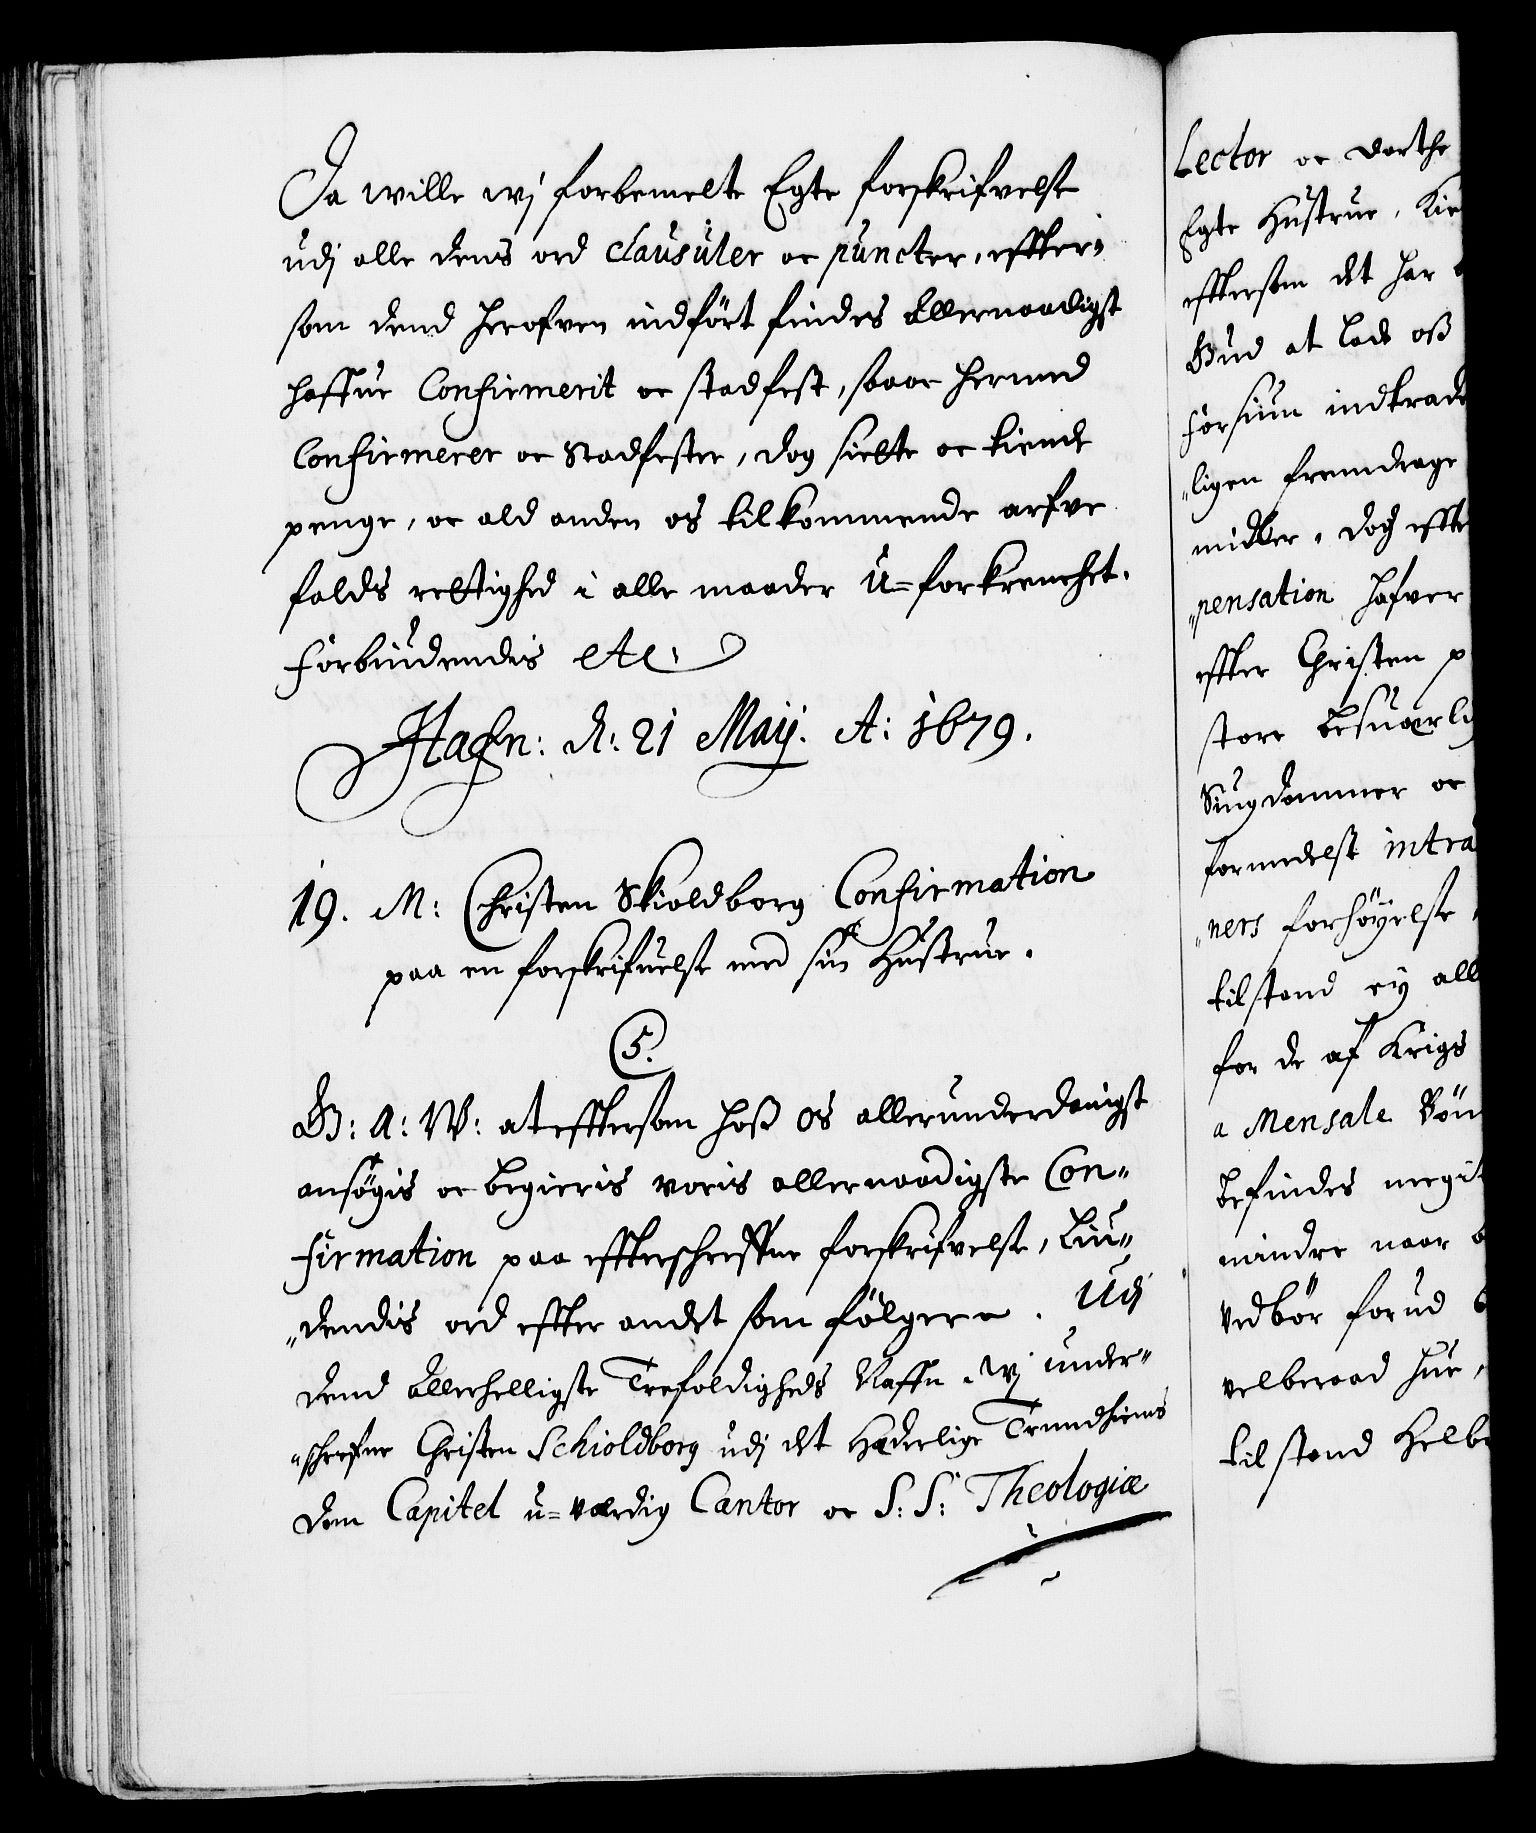 Da wille wj forbemelte Egte forskrifvelse
udj alle dens ord clausuler oc puncter, effter„
som dend herofven indført findes Allernaadigst
haffue Confirmerit oc stadfest, saa oc hermed
Confirmerer oc Stadfester, dog siette oc tiende
penge, oc ald anden os tilkommende arfve
falds rettighed i alle maader U=forkrenchet.
Forbiudendis etc.
Hafn: d: 21 Maij. A: 1679.
19. M: Christen Skioldborg Confirmation
paa en forskrifvelse med sin Hustrue.
5.
G: A: W: at effttersom hoß os allerunderdanigst
ansøgis oc begieris voris allernaadigste Con„
firmation paa effterschreffne forskrifvelse, Liu„
„dendis ord effter andet som følger. Udj
dend Allerhelligste Trefoldigheds Naffn, Wj under„
„schrefne Christen Schioldborg udj det Hæderlige Trundhiems
Dom Capitel u=værdig Cantor oc S: S: Theologiæ
Lector oc Dorthe
Egte Hustrue,
efftersom det har
Gud at lade oß
forsiun indtrade
„ligen fremdrage
midler, dog effte
„pensation hafver
effter Christen p
store besuærli
Siugdommer oc
formedelst intra
„ners forhøyelse
tilstand ey all
for de af Krigs
a Mensale Bøn
befindes megit
mindre naar
vedbør forud
velberaad hue,
tilstand Helbr